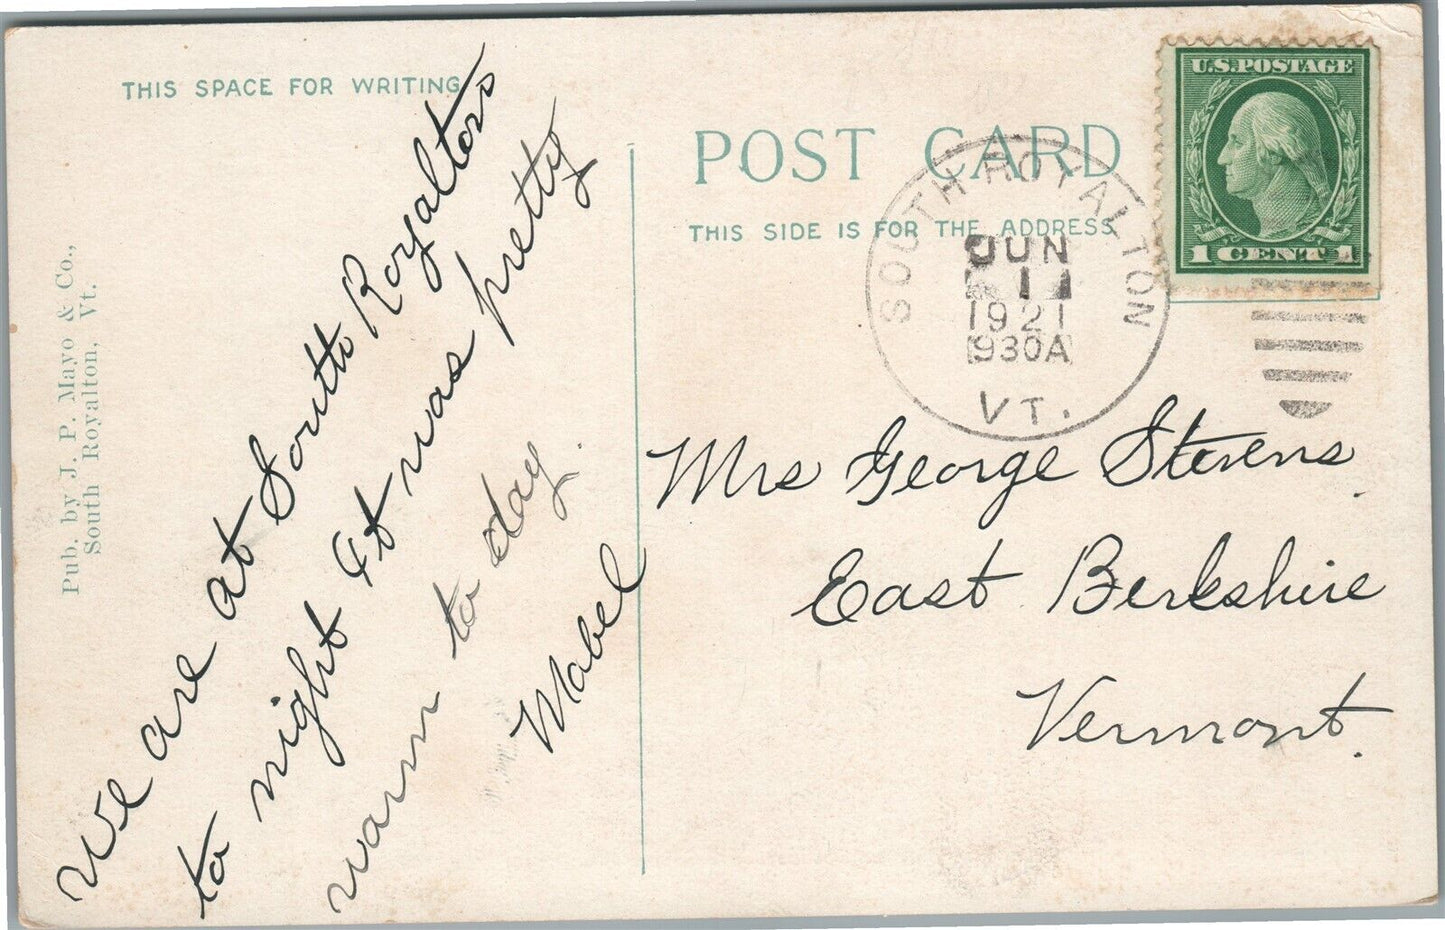 THIS SPACE FOR WRITING
We are at South Royalton
to night & it was pretty
warm to day.
Mabel
Pub. by J. P. Mayo & Co.,
South Royalton, Vt.
POST CARD
THIS SIDE IS FOR THE ADDRESS
U.S. POSTAGE
1 CENT 1
SOUTH ROYALTON
JUN
1921
930A
VT.
Mrs George Stevens
East Berkshire
Vermont.